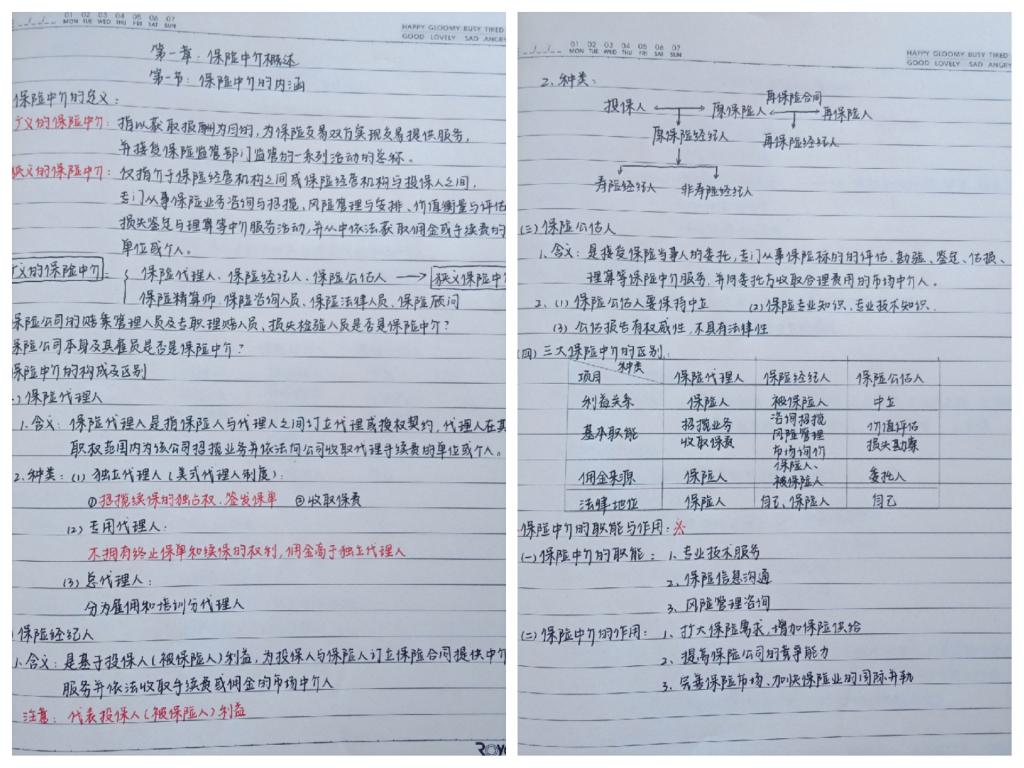 01 02 03 04 05 06 07
MON TUE WED THU FRI SAT SUN
HAPPY GLOOMY BUSY TIRED
GOOD LOVELY SAD ANGRY
第一章：保险中介概述
第一节：保险中介的内涵
保险中介的定义：
广义的保险中介：指以获取报酬为目的，为保险交易双方实现交易提供服务，
并接受保险监管部门监管的一系列活动的总称。
狭义的保险中介：仅指介于保险经营机构之间或保险经营机构与投保人之间，
专门从事保险业务咨询与招揽、风险管理与安排、价值衡量与评估
损失鉴定与理算等中介服务活动，并从中依法获取佣金或手续费的
单位或个人。
广义的保险中介 { 保险代理人、保险经纪人、保险公估人 → 狭义保险中介
保险精算师、保险咨询人员、保险法律人员、保险顾问
保险公司的赔案管理人员及专职理赔人员、损失检验人员是否是保险中介？
保险公司本身及其雇员是否是保险中介？
保险中介的构成及区别
)保险代理人
1.含义：保险代理人是指保险人与代理人之间订立代理或授权契约，代理人在其
职权范围内为该公司招揽业务并依法向公司收取代理手续费的单位或个人。
2.种类：(1) 独立代理人（美式代理人制度）：
①招揽续保的独占权、签发保单 ②收取保费
(2) 专用代理人：
不拥有终止保单和续保的权利，佣金高于独立代理人
(3) 总代理人：
分为雇佣和培训分代理人
)保险经纪人
1.含义：是基于投保人（被保险人）利益，为投保人与保险人订立保险合同提供中介
服务并依法收取手续费或佣金的市场中介人
注意：代表投保人（被保险人）利益
01 02 03 04 05 06 07
MON TUE WED THU FRI SAT SUN
HAPPY GLOOMY BUSY TIRED
GOOD LOVELY SAD ANGRY
2.种类：
再保险合同
投保人 ←→ 原保险人 ←→ 再保险人
原保险经纪人 再保险经纪人
寿险经纪人 非寿险经纪人
(三) 保险公估人
1.含义：是接受保险当事人的委托，专门从事保险标的的评估、勘验、鉴定、估损、
理算等保险中介服务，并向委托方收取合理费用的市场中介人。
2. (1) 保险公估人要保持中立 (2) 保险专业知识、专业技术知识.
(3) 公估报告有权威性，不具有法律性
(四) 三大保险中介的区别：
种类
项目 保险代理人 保险经纪人 保险公估人
利益关系 保险人 被保险人 中立
基本职能 招揽业务 收取保费 咨询招揽 风险管理 市场询价 价值评估 损失勘察
佣金来源 保险人 保险人、被保险人 委托人
法律地位 保险人 自己、保险人 自己
保险中介的职能与作用：※
(一) 保险中介的职能：1、专业技术服务
2、保险信息沟通
3、风险管理咨询
(二) 保险中介的作用：1、扩大保险需求，增加保险供给
2、提高保险公司的竞争能力
3、完善保险市场、加快保险业的国际并轨